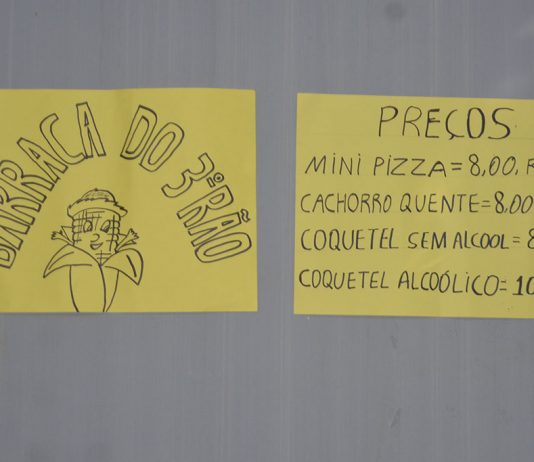 BARRACA DO 3ºRÃO
PREÇOS
MINI PIZZA = 8,00. R
CACHORRO QUENTE = 8,00
COQUETEL SEM ALCOOL = 8
COQUETEL ALCOÓLICO = 10